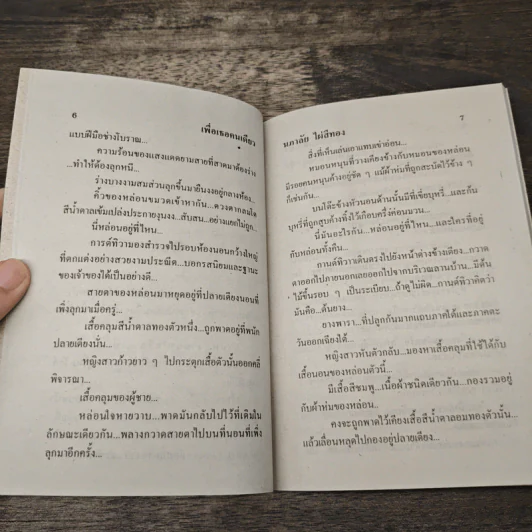 6
เพื่อเธอคนเดียว
แบบฝีมือช่างโบราณ...
ความร้อนของแสงแดดยามสายที่สาดมาต้องร่าง
...ทำให้ต้องลุกหนี...
ร่างบางงามสมส่วนลุกขึ้นมายืนงงอยู่กลางห้อง...
คิ้วของหล่อนขมวดเข้าหากัน...ดวงตากลมโต
สีน้ำตาลเข้มเปล่งประกายงุนงง...สับสน...อย่างแยกไม่ถูก...
นี่หล่อนอยู่ที่ไหน...
การต์ทิวามองสำรวจไปรอบห้องนอนกว้างใหญ่
ที่ตกแต่งอย่างสวยงามประณีต...บอกรสนิยมและฐานะ
ของเจ้าของได้เป็นอย่างดี...
สายตาของหล่อนมาหยุดอยู่ที่ปลายเตียงนอนที่
เพิ่งลุกมาเมื่อครู่...
เสื้อคลุมสีน้ำตาลทองตัวหนึ่ง...ถูกพาดอยู่ที่พนัก
ปลายเตียงนั่น...
หญิงสาวก้าวยาว ๆ ไปกระตุกเสื้อตัวนั้นออกคลี่
พิจารณา...
เสื้อคลุมของผู้ชาย...
หล่อนใจหายวาบ...พาดมันกลับไปไว้ที่เดิมใน
ลักษณะเดียวกัน...พลางกวาดสายตาไปบนที่นอนที่เพิ่ง
ลุกมาอีกครั้ง...
นภาลัย ไผ่สีทอง
7
สิ่งที่เห็นเล่นเอาแทบเข่าอ่อน...
หมอนหนุนที่วางเคียงข้างกับหมอนของหล่อน
มีรอยคนหนุนค้างอยู่ชัด ๆ แม้ผ้าห่มที่ถูกสะบัดไว้ข้าง ๆ
ก็เช่นกัน...
บนโต๊ะข้างหัวนอนด้านนั้นมีที่เขี่ยบุหรี่...และก้น
บุหรี่ที่ถูกสูบค้างทิ้งไว้เกือบครึ่งค่อนมวน...
นี่มันอะไรกัน...หล่อนอยู่ที่ไหน...และใครที่อยู่
กับหล่อนทั้งคืน...
กานต์ทิวาเดินตรงไปยังหน้าต่างข้างเตียง...กวาด
ตาออกไปภายนอกเลยออกไปจากบริเวณลานบ้าน...มีต้น
ไม้ขึ้นรอบ ๆ เป็นระเบียบ...ถ้าดูไม่ผิด...กานต์ทิวาคิดว่า
มันคือ...ต้นยาง...
ยางพารา...ที่ปลูกกันมากแถบภาคใต้และภาคตะ
วันออกเฉียงใต้...
หญิงสาวหันตัวกลับ...มองหาเสื้อคลุมที่ใช้ได้กับ
เสื้อนอนของหล่อนตัวนี้...
มีเสื้อสีชมพู...เนื้อผ้าชนิดเดียวกัน...กองรวมอยู่
กับผ้าห่มของหล่อน...
คงจะถูกพาดไว้เคียงเสื้อสีน้ำตาลอมทองตัวนั้น...
แล้วเลื่อนหลุดไปกองอยู่ปลายเตียง...